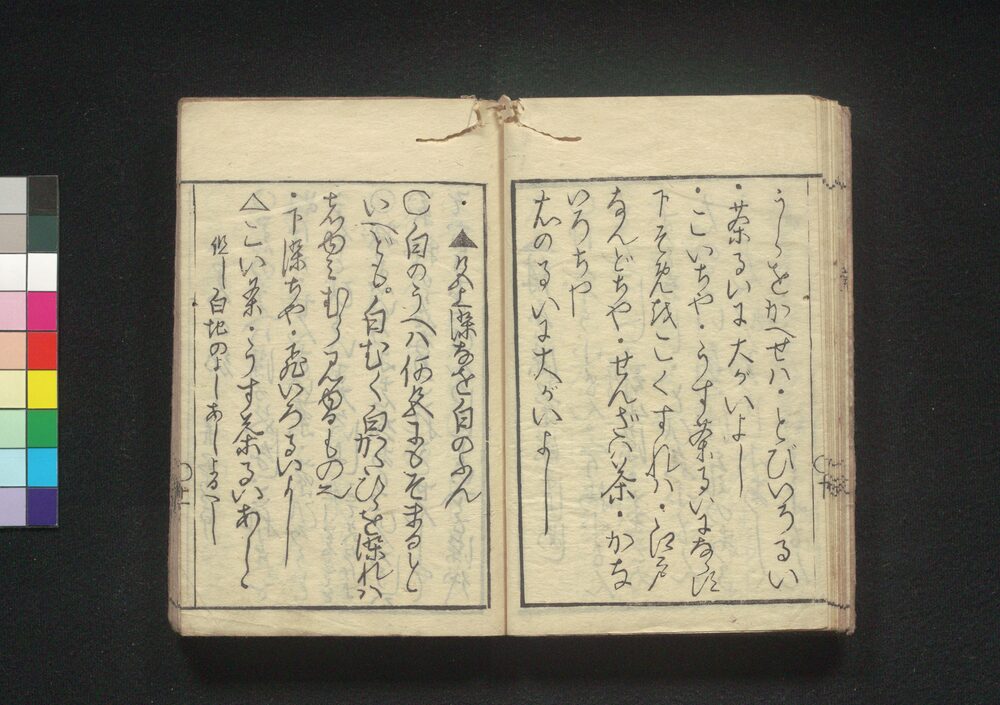 うらをかへせハ・とびいろるい
・茶るいは大がいよし
・こいちや・うす茶るいになる
下そめはこくすれハ・江戸
なんどちや・せんざい茶・かな
いろちや
右のるい大がいよし
・▲又上染なを白のふん
○白のうへハ何色にもそまると
いへども。白むく白がへひらを染れハ
もの也
・下染ちや・飛いろるいよし
△こい茶・うす茶るいあし
但し白地のよしあしよるへし